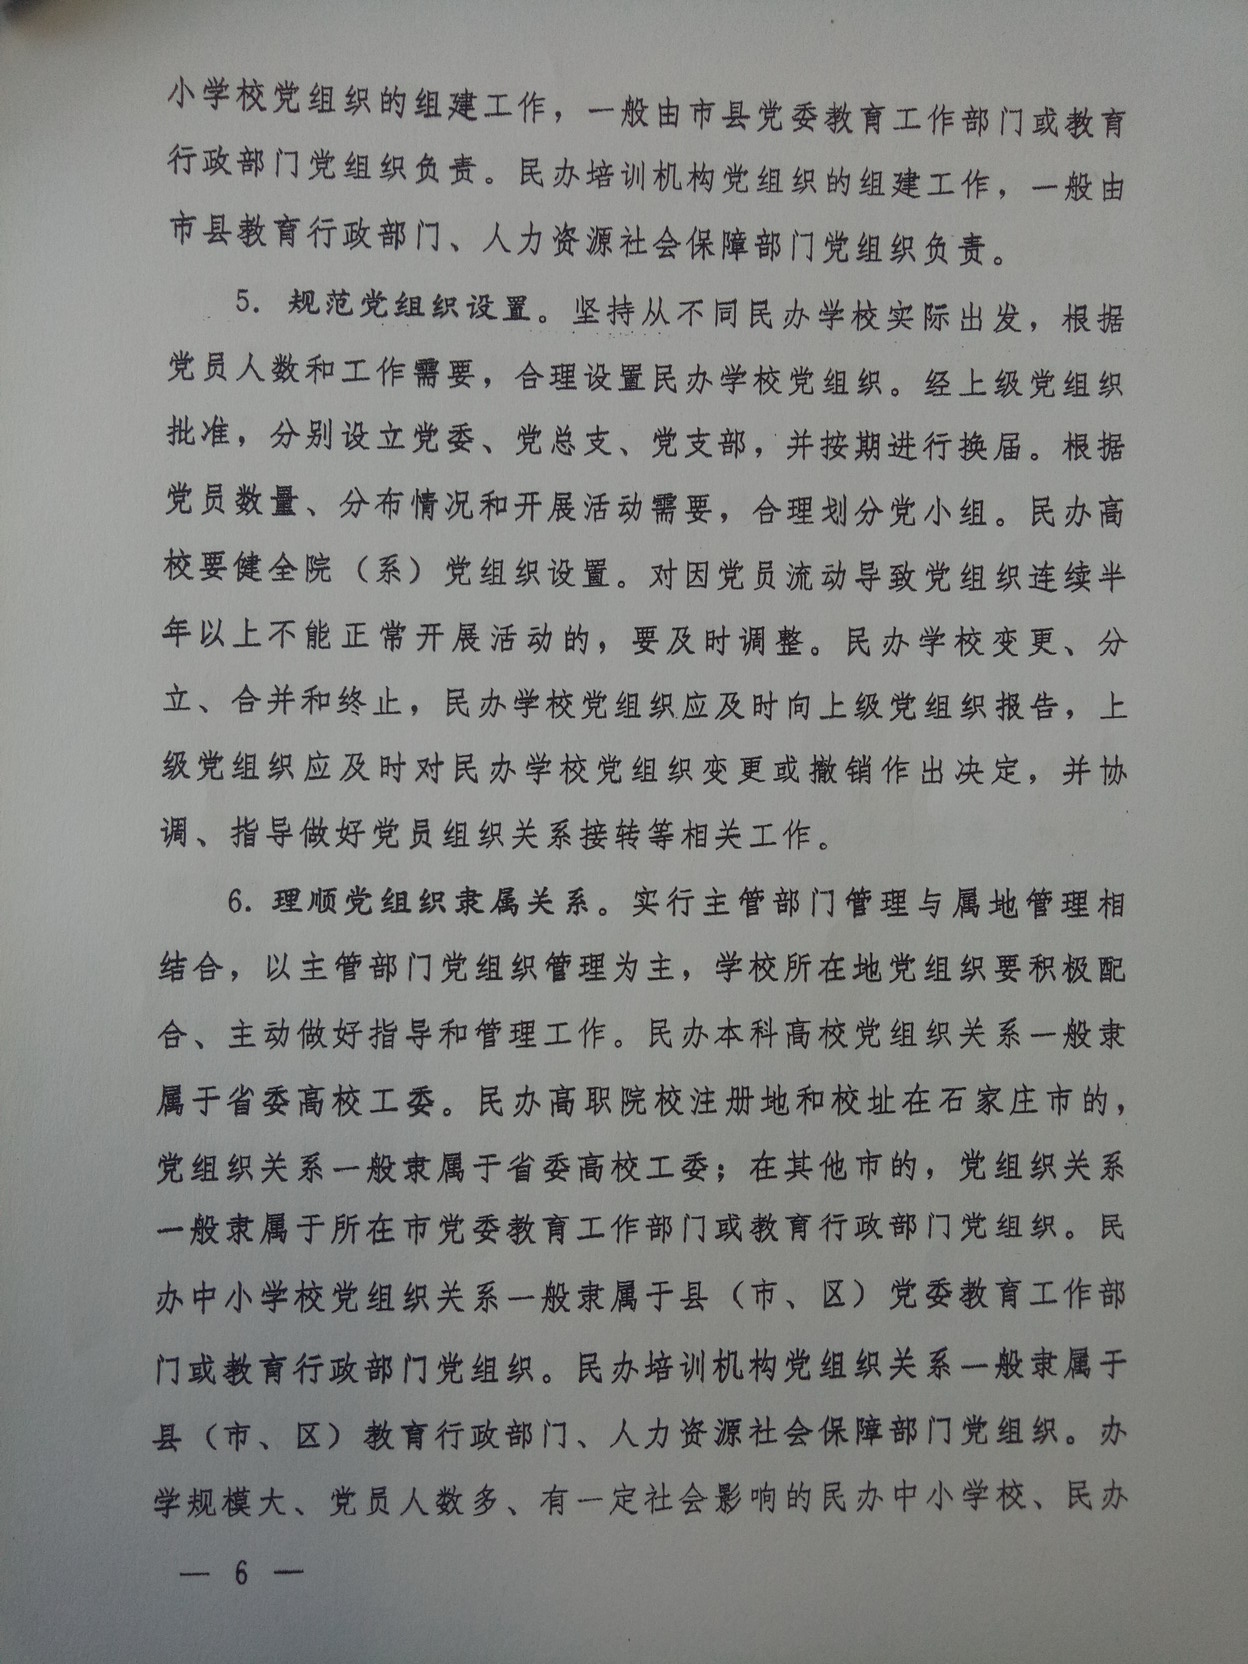 小学校党组织的组建工作，一般由市县党委教育工作部门或教育
行政部门党组织负责。民办培训机构党组织的组建工作，一般由
市县教育行政部门、人力资源社会保障部门党组织负责。
5. 规范党组织设置。坚持从不同民办学校实际出发，根据
党员人数和工作需要，合理设置民办学校党组织。经上级党组织
批准，分别设立党委、党总支、党支部，并按期进行换届。根据
党员数量、分布情况和开展活动需要，合理划分党小组。民办高
校要健全院（系）党组织设置。对因党员流动导致党组织连续半
年以上不能正常开展活动的，要及时调整。民办学校变更、分
立、合并和终止，民办学校党组织应及时向上级党组织报告，上
级党组织应及时对民办学校党组织变更或撤销作出决定，并协
调、指导做好党员组织关系接转等相关工作。
6. 理顺党组织隶属关系。实行主管部门管理与属地管理相
结合，以主管部门党组织管理为主，学校所在地党组织要积极配
合、主动做好指导和管理工作。民办本科高校党组织关系一般隶
属于省委高校工委。民办高职院校注册地和校址在石家庄市的，
党组织关系一般隶属于省委高校工委；在其他市的，党组织关系
一般隶属于所在市党委教育工作部门或教育行政部门党组织。民
办中小学校党组织关系一般隶属于县（市、区）党委教育工作部
门或教育行政部门党组织。民办培训机构党组织关系一般隶属于
县（市、区）教育行政部门、人力资源社会保障部门党组织。办
学规模大、党员人数多、有一定社会影响的民办中小学校、民办
— 6 —